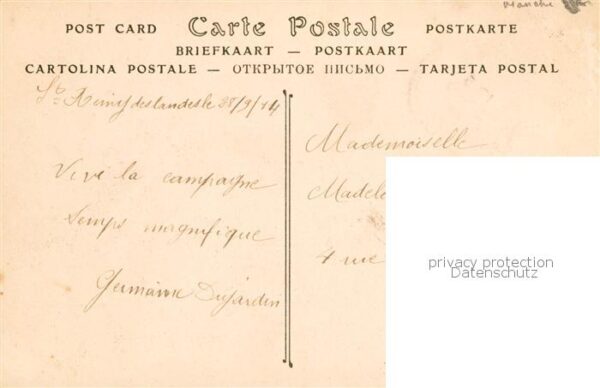 Manche
POST CARD Carte Postale POSTKARTE
BRIEFKAART — POSTKAART
CARTOLINA POSTALE — ОТКРЫТОЕ ПИСЬМО — TARJETA POSTAL
St Remy des landes le 28/9/14
Vive la campagne
temps magnifique
Germaine Dujardin
Mademoiselle
Madele
4 rue
privacy protection
Datenschutz